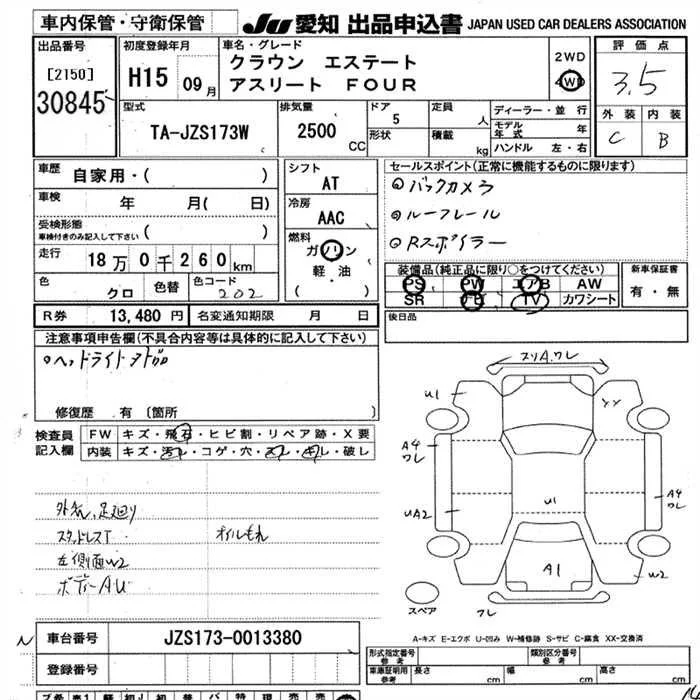 車内保管・守衛保管
JU 愛知 出品申込書 JAPAN USED CAR DEALERS ASSOCIATION
出品番号
[2150]
30845
初度登録年月
H15 09月
車名・グレード
クラウン エステート
アスリート FOUR
2WD
4WD
評価点
3.5
外装 内装
C B
型式
TA-JZS173W
排気量
2500 CC
ドア
5
形状
定員
人
積載
kg
ディーラー・並行
モデル年式 年
ハンドル 左・右
車歴
自家用・( )
車検 年 月( 日)
受検形態
車検付きのみ記入して下さい ( )
走行 18万0千260km
色 クロ 色替 色コード 202
シフト
AT
冷房
AAC
燃料
ガソリン
軽・油
( )
セールスポイント(正常に機能するものに限ります)
◎バックカメラ
◎ルーフレール
◎Rスポイラー
装備品(純正品に限り○をつけてください)
PS PW エアB AW
SR ナビ TV カワシート
新車保証書
有・無
R券 13,480円 名変通知期限 月 日
後日品
注意事項申告欄(不具合内容等は具体的に記入して下さい)
修復歴 有 〔箇所
検査員
記入欄
FW キズ・飛石・ヒビ割・リペア跡・X要
内装 キズ・汚レ・コゲ・穴・スレ・キレ・破レ
外気,足廻り
スタッドレスT オイルもれ
左側面W2
ボディーAU
スリA,ワレ
U1
YY
A4
ワレ
A4
ワレ
UA2
U1
A1
W2
スペア
ワレ
A-キズ E-エクボ U-凹み W-補修跡 S-サビ C-腐食 XX-交換済
車台番号 JZS173-0013380
登録番号
形式指定番号
参考
類別区分番号
参考
車庫証明用
参考
長さ cm 幅 cm 高さ cm